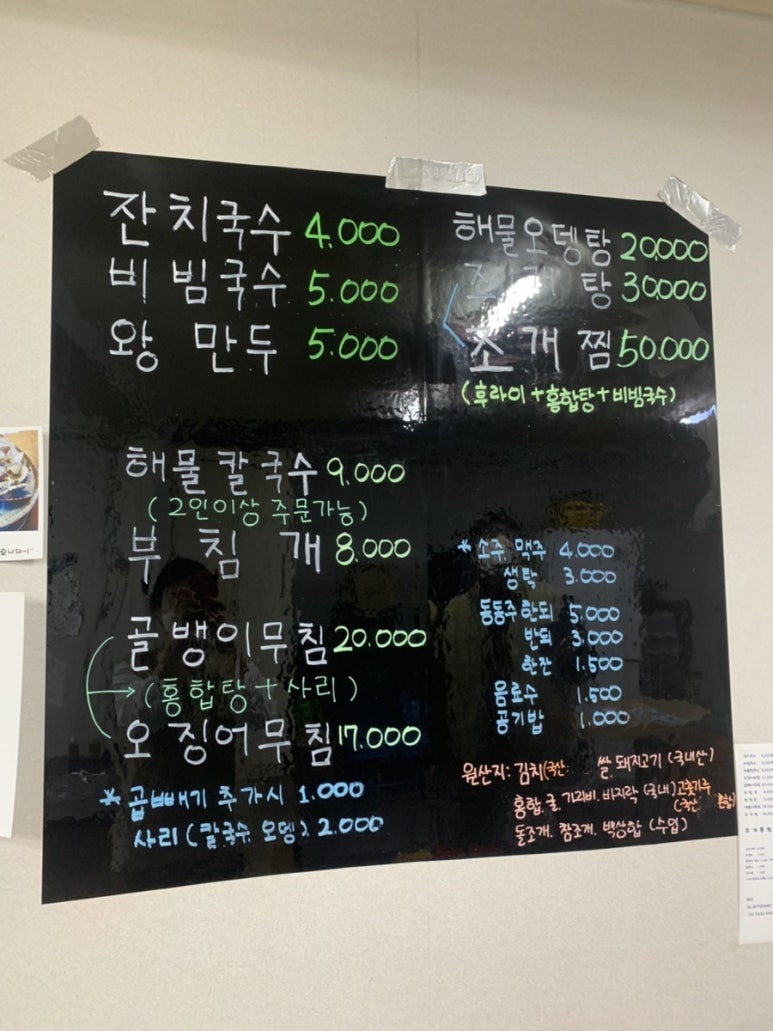 잔치국수 4.000
비빔국수 5.000
왕만두 5.000
해물칼국수 9.000
(2인이상 주문가능)
부침개 8.000
골뱅이무침 20.000
(홍합탕+사리)
오징어무침 17.000
* 곱빼기 추가시 1.000
사리(칼국수.오뎅) 2.000
해물오뎅탕 20,000
조개탕 30.000
조개찜 50.000
(후라이+홍합탕+비빔국수)
* 소주 맥주 4.000
생탁 3.000
동동주 한되 5.000
반되 3.000
한잔 1.500
음료수 1.500
공기밥 1.000
원산지: 김치(국산 쌀.돼지고기(국내산)
홍합.굴.가리비.바지락(국내) 고춧가루
(국산
돌조개.참조개.백상합(수입)